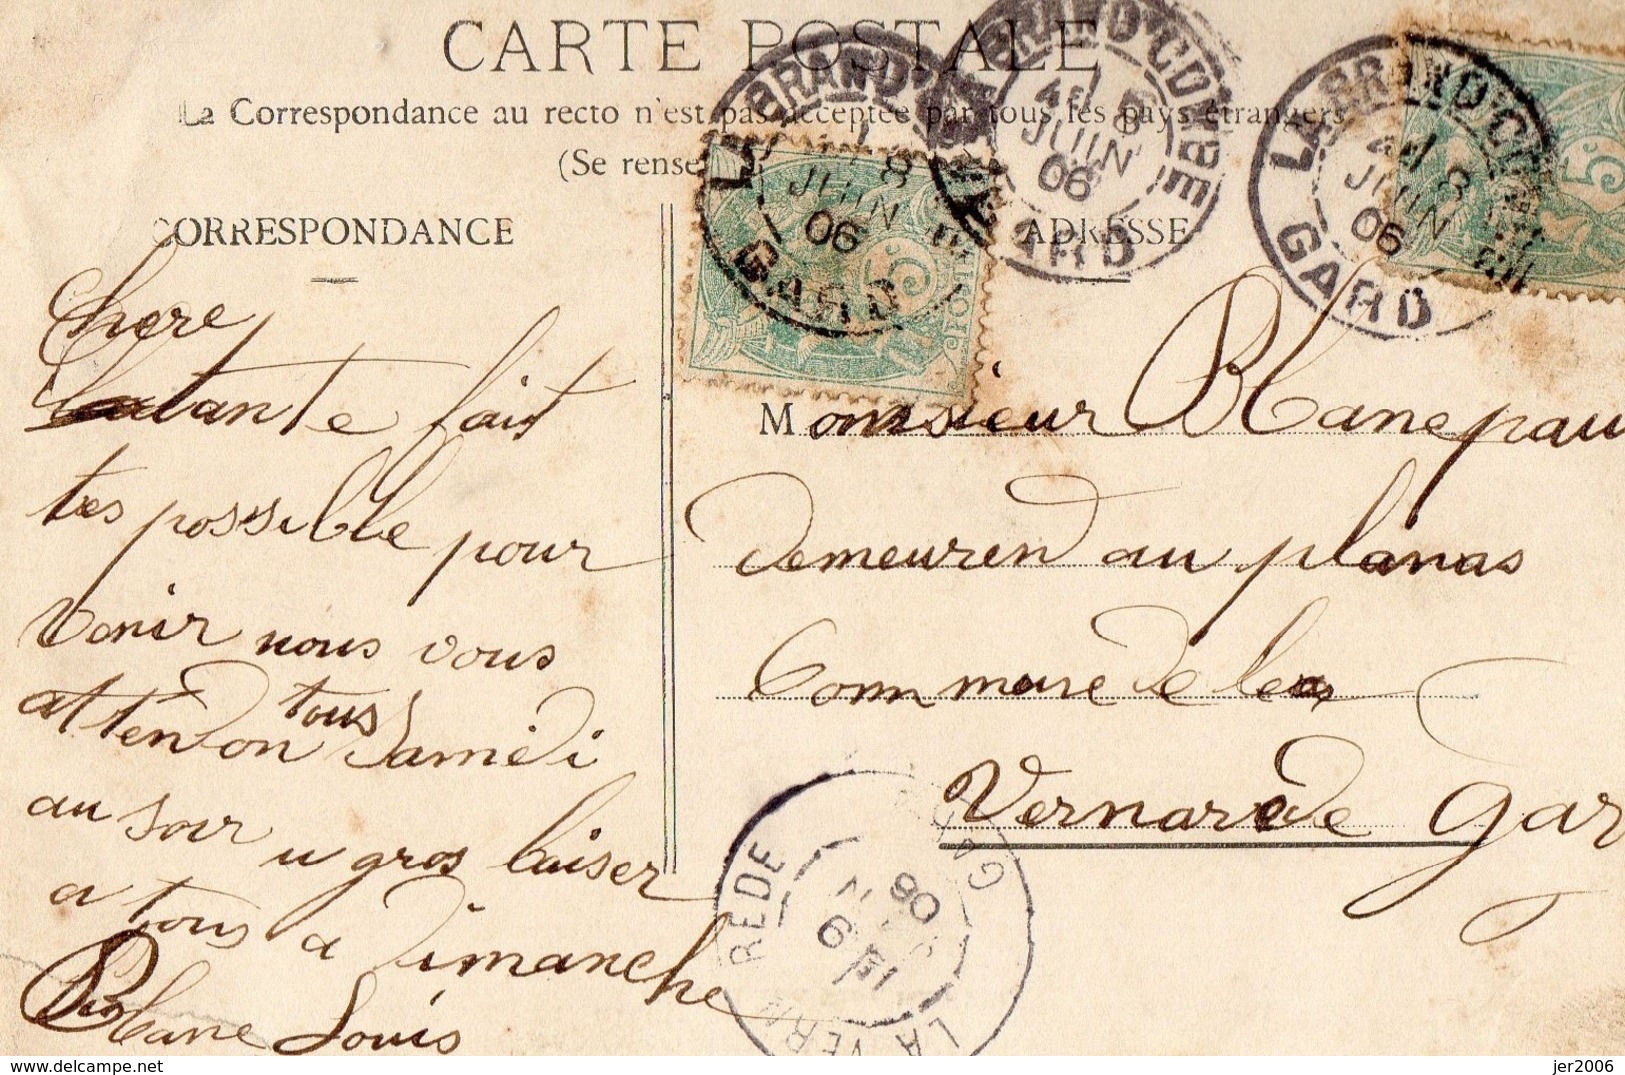 CARTE POSTALE
La Correspondance au recto n'est pas acceptée par tous les pays étrangers
(Se rense
CORRESPONDANCE
ADRESSE
LA GRAND'COMBE
4E 8
JUIN
06
GARD
LA GRAND'COMBE
4E 8
JUIN
06
GARD
LA GRAND'COMBE
4E 8
JUIN
06
GARD
5c
5c
chere
tante fait
tres possible pour
venir nous vous
attendon tous Samedi
au soir u gros baiser
a tous a Dimanche
Blanc Louis
Monsieur Blanc pau
demeuren au planas
Commune de la
Vernarede Gar
LA VERNAREDE
9
06
GARD
www.delcampe.net
jer2006